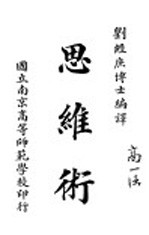 劉經庶博士編譯
高一涵
思維術
國立南京高等師範學校印行